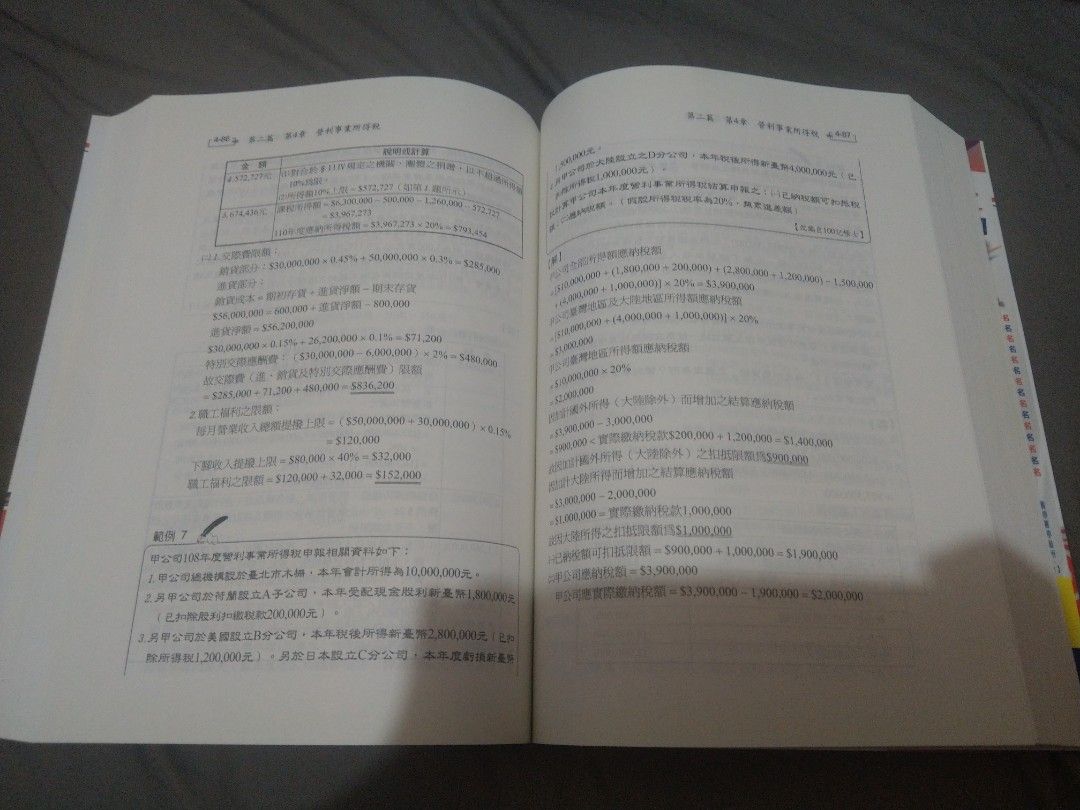 4-86 第二篇 第4章 營利事業所得稅
金 額 說明或計算
4.572,727元 ⑴對合於§11IV規定之機關、團體之捐贈，以不超過所得額
10%為限
⑵所得額10%上限＝$572,727（如第1題所示）
5.674,436元 課稅所得額＝$6,300,000－500,000－1,260,000－572,727
＝$3,967,273
110年度應納所得稅額＝$3,967,273×20%＝$793,454
㈡1.交際費限額：
銷貨部分：$30,000,000×0.45%＋50,000,000×0.3%＝$285,000
進貨部分：
銷貨成本＝期初存貨＋進貨淨額－期末存貨
$56,000,000＝600,000＋進貨淨額－800,000
進貨淨額＝$56,200,000
$30,000,000×0.15%＋26,200,000×0.1%＝$71,200
特別交際應酬費：（$30,000,000－6,000,000）×2%＝$480,000
故交際費（進、銷貨及特別交際應酬費）限額
＝$285,000＋71,200＋480,000＝$836,200
2.職工福利之限額：
每月營業收入總額提撥上限＝（$50,000,000＋30,000,000）×0.15%
＝$120,000
下腳收入提撥上限＝$80,000×40%＝$32,000
職工福利之限額＝$120,000＋32,000＝$152,000
範例 7
甲公司108年度營利事業所得稅申報相關資料如下：
1.甲公司總機構設於臺北市木柵，本年會計所得為10,000,000元。
2.另甲公司於荷蘭設立A子公司，本年受配現金股利新臺幣1,800,000元
（已扣除股利扣繳稅款200,000元）。
3.另甲公司於美國設立B分公司，本年稅後所得新臺幣2,800,000元（已扣
除所得稅1,200,000元）。另於日本設立C分公司，本年度虧損新臺幣
第二篇 第4章 營利事業所得稅 4-87
1,500,000元。
4.另甲公司於大陸設立之D分公司，本年稅後所得新臺幣4,000,000元（已
扣除所得稅1,000,000元）。
試計算甲公司本年度營利事業所得稅結算申報之：㈠已納稅額可扣抵稅
額。㈡應納稅額。（假設所得稅稅率為20%，無累進差額）
【改編自100記帳士】
【解】
甲公司全部所得額應納稅額
＝[$10,000,000＋(1,800,000＋200,000)＋(2,800,000＋1,200,000)－1,500,000
＋(4,000,000＋1,000,000)]×20%＝$3,900,000
甲公司臺灣地區及大陸地區所得額應納稅額
＝[$10,000,000＋(4,000,000＋1,000,000)]×20%
＝$3,000,000
甲公司臺灣地區所得額應納稅額
＝$10,000,000×20%
＝$2,000,000
因加計國外所得（大陸除外）而增加之結算應納稅額
＝$3,900,000－3,000,000
＝$900,000＜實際繳納稅款$200,000＋1,200,000＝$1,400,000
故因加計國外所得（大陸除外）之扣抵限額為$900,000
因加計大陸所得而增加之結算應納稅額
＝$3,000,000－2,000,000
＝$1,000,000＝實際繳納稅款1,000,000
故因大陸所得之扣抵限額為$1,000,000
㈠已納稅額可扣抵限額＝$900,000＋1,000,000＝$1,900,000
㈡甲公司應納稅額＝$3,900,000
甲公司應實際繳納稅額＝$3,900,000－1,900,000＝$2,000,000